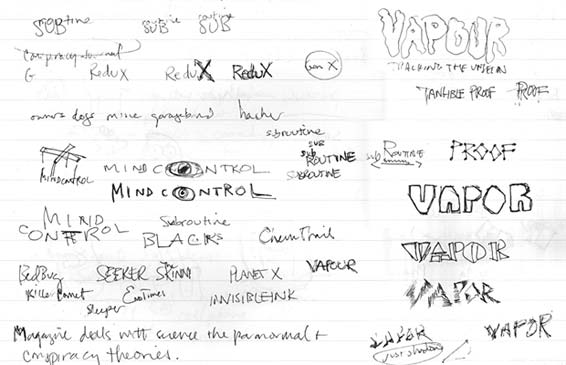 SUBtine SUBtine SUB routine VAPOUR
Conspiracy Journal TRACKING THE UNSEEN
G ReduX ReduX ReduX Gen X TANGIBLE PROOF PROOF
owners dogs mine garageband hacker
subroutine
SUB ROUTINE Sub ROUTINE PROOF
SUBROUTINE
MINDCONTROL MIND CONTROL
MIND CONTROL VAPOR
MIND CONTROL Subroutine
BLACKS ChemTrail VAPOR
BedBug SEEKER The SKINNI PLANET X VAPOUR
Killer Comet ExoTimes INVISIBLE INK VAPOR
Sleeper
Magazine deals with science the paranormal + VAPOR VAPOR
conspiracy theories. just shading